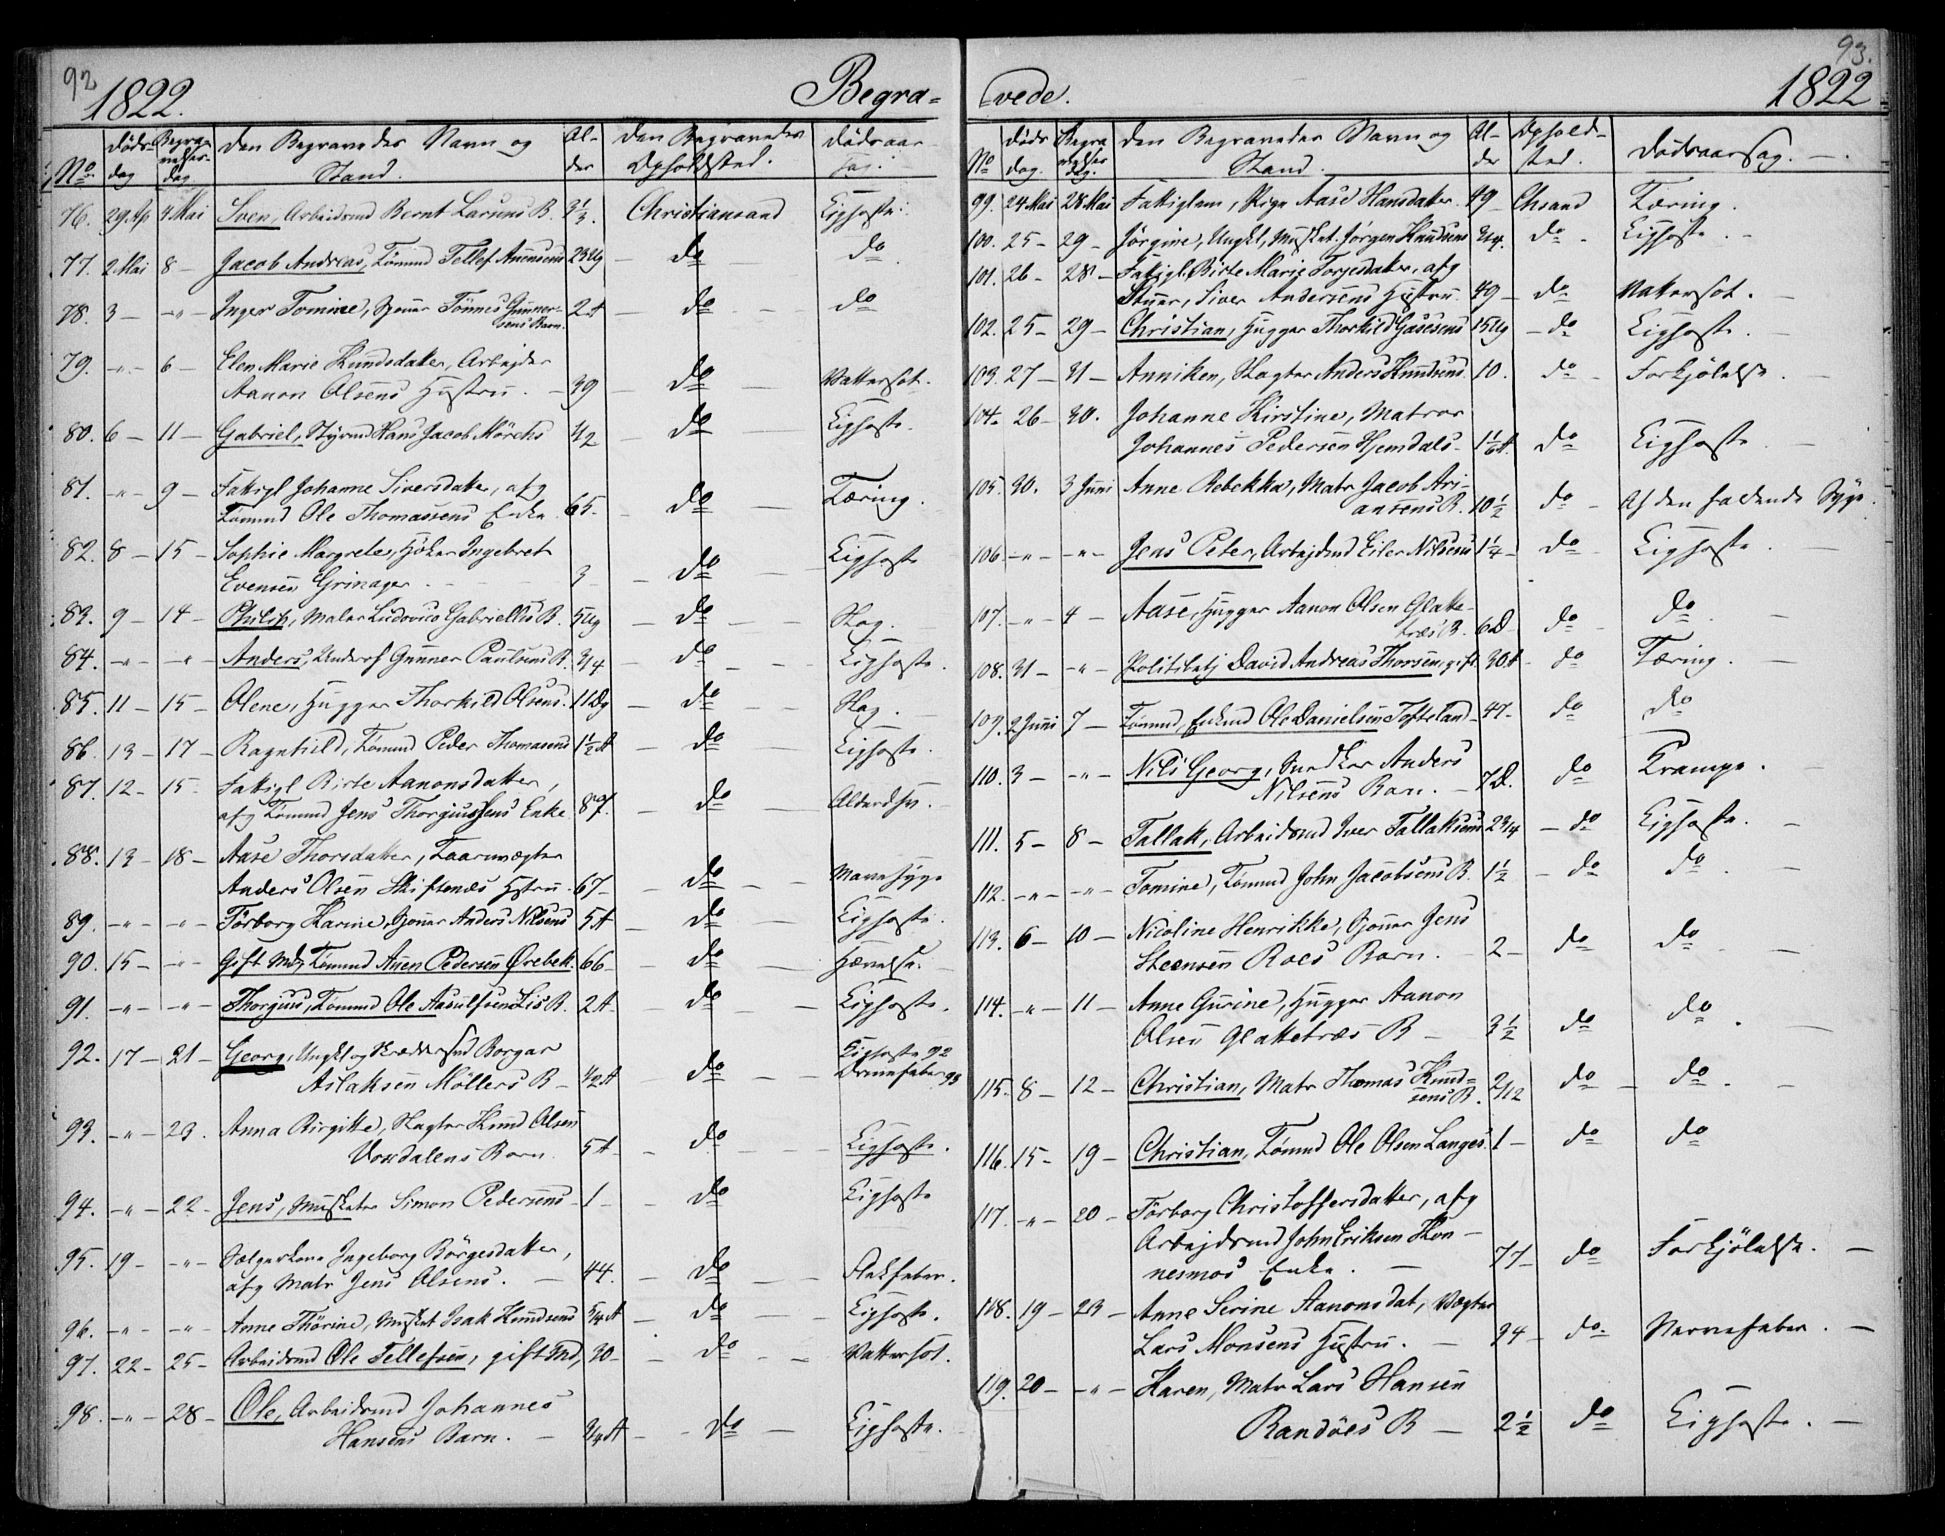 92
1822.
Begra=
No
Døds-
dag
Begra-
velses-
dag
Den Begravedes Navn og
Stand.
Al-
der
Den Begravedes
Opholdsted.
Dødsaar-
sag.
76. 29 Ap 4 Mai Sven, Arbeidsmd Bernt Larsens B. Christiansand Kighoste.
77. 2 Mai 8 – Jacob Andreas, Tømmd Tellef Aanensens 23 Ug – do do
78. 3 – –"– Inger Tomine, Tønnes Gunner-
sens Barn. 2 A – do do
79. –"– 6 – Elen Marie Knudsdatter, Arbejder
Aanon Olsens Hustru. – 39 – do – Vattersot.
80. 6 – 11 – Gabriel, Styrmd Hans Jacob Mörchs 1/2 – do – Kighoste.
81. –"– 9 – Fattigl Johanne Siversdatter, afg
Tømmd Ole Thomassens Enke. 65. – do – Tæring.
82. 8 – 15 – Sophie Margrete, Höker Ingebret
Evensen Grinager 3 – do – Kighoste
83. 9 – 14 – Philip, Maler Ludovico Gabriellis B. 5 Ug – do – Slag.
84. –"– –"– Anders, Underof Gunner Paulsens B. 3/4 – do – Kighoste.
85. 11 – 15 – Olene, Hugger Thorkild Olsens. 11 Dg – do – Slag.
86. 13 – 17 – Ragnhild, Tømmd Peder Thomasens 1 1/2 A – do – Kighoste.
87. 12 – 15. Fattigl Birte Aanonsdatter,
afg Tømmd Jens Thorgiussens Enke 87. – do – Alderdom.
88. 13 – 18 – Aase Thorsdatter, Taarnvægter
Anders Olsen Skiftenæs Hstru 67 – – do – – Mavesyge
89. –"– –"– Törborg Karine, Anders Nilsens 5 A – do – Kighoste.
90. 15 – –"– Gift Md, Tømmd Anen Pedersen Ørebek. 66 – do – Hævelse.
91. –"– –"– Thorgius, Tømmd Ole Aasulfsen Lis B. 2 A – do – Kighoste.
92. 17 – 21 – Georg, Ungkl og Skreddersvd Borgar
Aslaksen Möllers B – 1/2 A – do – Kighoste 92
93. –"– 23. Anna Birgitte, Slagter Knud Olsen
Vosdalens Barn. 5 A – do – Kighoste.
94. –"– 22 – Jens, Musketer Simon Pedersens – 1 – do Kighoste
95. 19 – –"– Sælgerkone Ingeborg Börgesdatter,
afg Matr Jens Olsens. – 44. – do – Flekfeber.
96. –"– –"– Anne Thörine, Musket Isak Knudsens 5/4 A – do – Kighoste.
97. 22 – 25 – Arbeidsmd Ole Tellefsen, gift Md, 30 – do – Vattersot.
98. –"– 28 – Ole, Arbeidsmd Johannes
Hansens Barn. – 3/4 A – do – Kighoste.
93.
vede.
1822
No
Døds
dag.
Begra
velses
dag.
Den Begravedes Navn og
Stand.
Al-
der
Ophold-
sted.
Dødsaarsag. –
99. 24 Mai 28 Mai Fattiglem, Pige Aase Hansdatter. 49 – Chsand Tæring.
100. 25 – 29 – Jörgine, Ungkl, Musket. Jörgen Knudsens 3/4. do – Kighoste. –
101. 26 – 28 – Fattigl. Birte Marie Torjesdatter, afg
Stuer, Siver Andersens Hustru. 49 – do – Vattersot. –
102. 25 – 29 – Christian, Hugger Thorkild Gasesens 15 Ug – do – Kighoste. –
103. 27 – 31 – Anniken, Slagter Anders Knudsens 10. do – Forkjölelse. –
104. 26 – 30. Johanne Kirstine, Matros
Johannes Pedersen Hjemdals – 1 1/6 A. do Kighoste. –
105. 30. 3 Juni Anne Rebekka, Matr Jacob Ari-
ansens B. 10 1/2 do – Af den faldende Syge.
106. –"– –"– Jens Peter, Arbejdmd Eiler Nilsens 1 1/4 – do Kighoste. –
107. –"– 4 – Aase, Hugger Aanon Olsen Glatte-
træs B. 6 D – do – do –
108. 31 – –"– Politibetj David Andreas Thorsen, gift 30 A – do Tæring. –
109. 2 Juni 7 – Tømmd, Enkmd Ole Danielsen Tofteland – 47 – do do
110. 3 – –"– Nils Georg, Snedker Anders
Nilsens Barn. – 7 D. do Krampe. –
111. 5 – 8 – Tallak, Arbeidsmd Iver Tallaksens 2 3/4 – do Kighoste. –
112. –"– –"– Tomine, Tømmd John Jacobsens B. 1 1/2 – do do. –
113. 6 – 10 – Nicoline Henrikke, Jens
Steensen Roes Barn. – 2 – do do –
114. –"– 11 – Anne Gurine, Hugger Aanon
Olsen Glattetræs B – 3 1/2 do do. –
115. 8 – 12 – Christian, Matr Thomas Knud=
sens B. 2/12 do – do. –
116. 15 – 19 – Christian, Tømmd Ole Olsen Langes. 1 – do do
117. –"– 20 – Törborg Christoffersdatter, afg
Arbejdsmd John Eriksen Kon –
nesmos Enke. – 77 – do Forkjölelse. –
118. 19 – 23 – Anne Serine Aanonsdat, Vægter
Lars Monsens Hustru. – 34 – do. Nervefeber. –
119. 20 – –"– Karen, Matr Lars Hansen
Randöes B – 2 1/2 do Kighoste. –